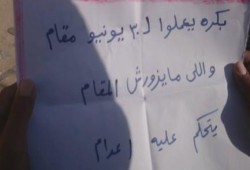 بكره يعملوا لـ ٣٠ يونيو مقام
واللى مايزورش المقام
يتحكم عليه إعدام